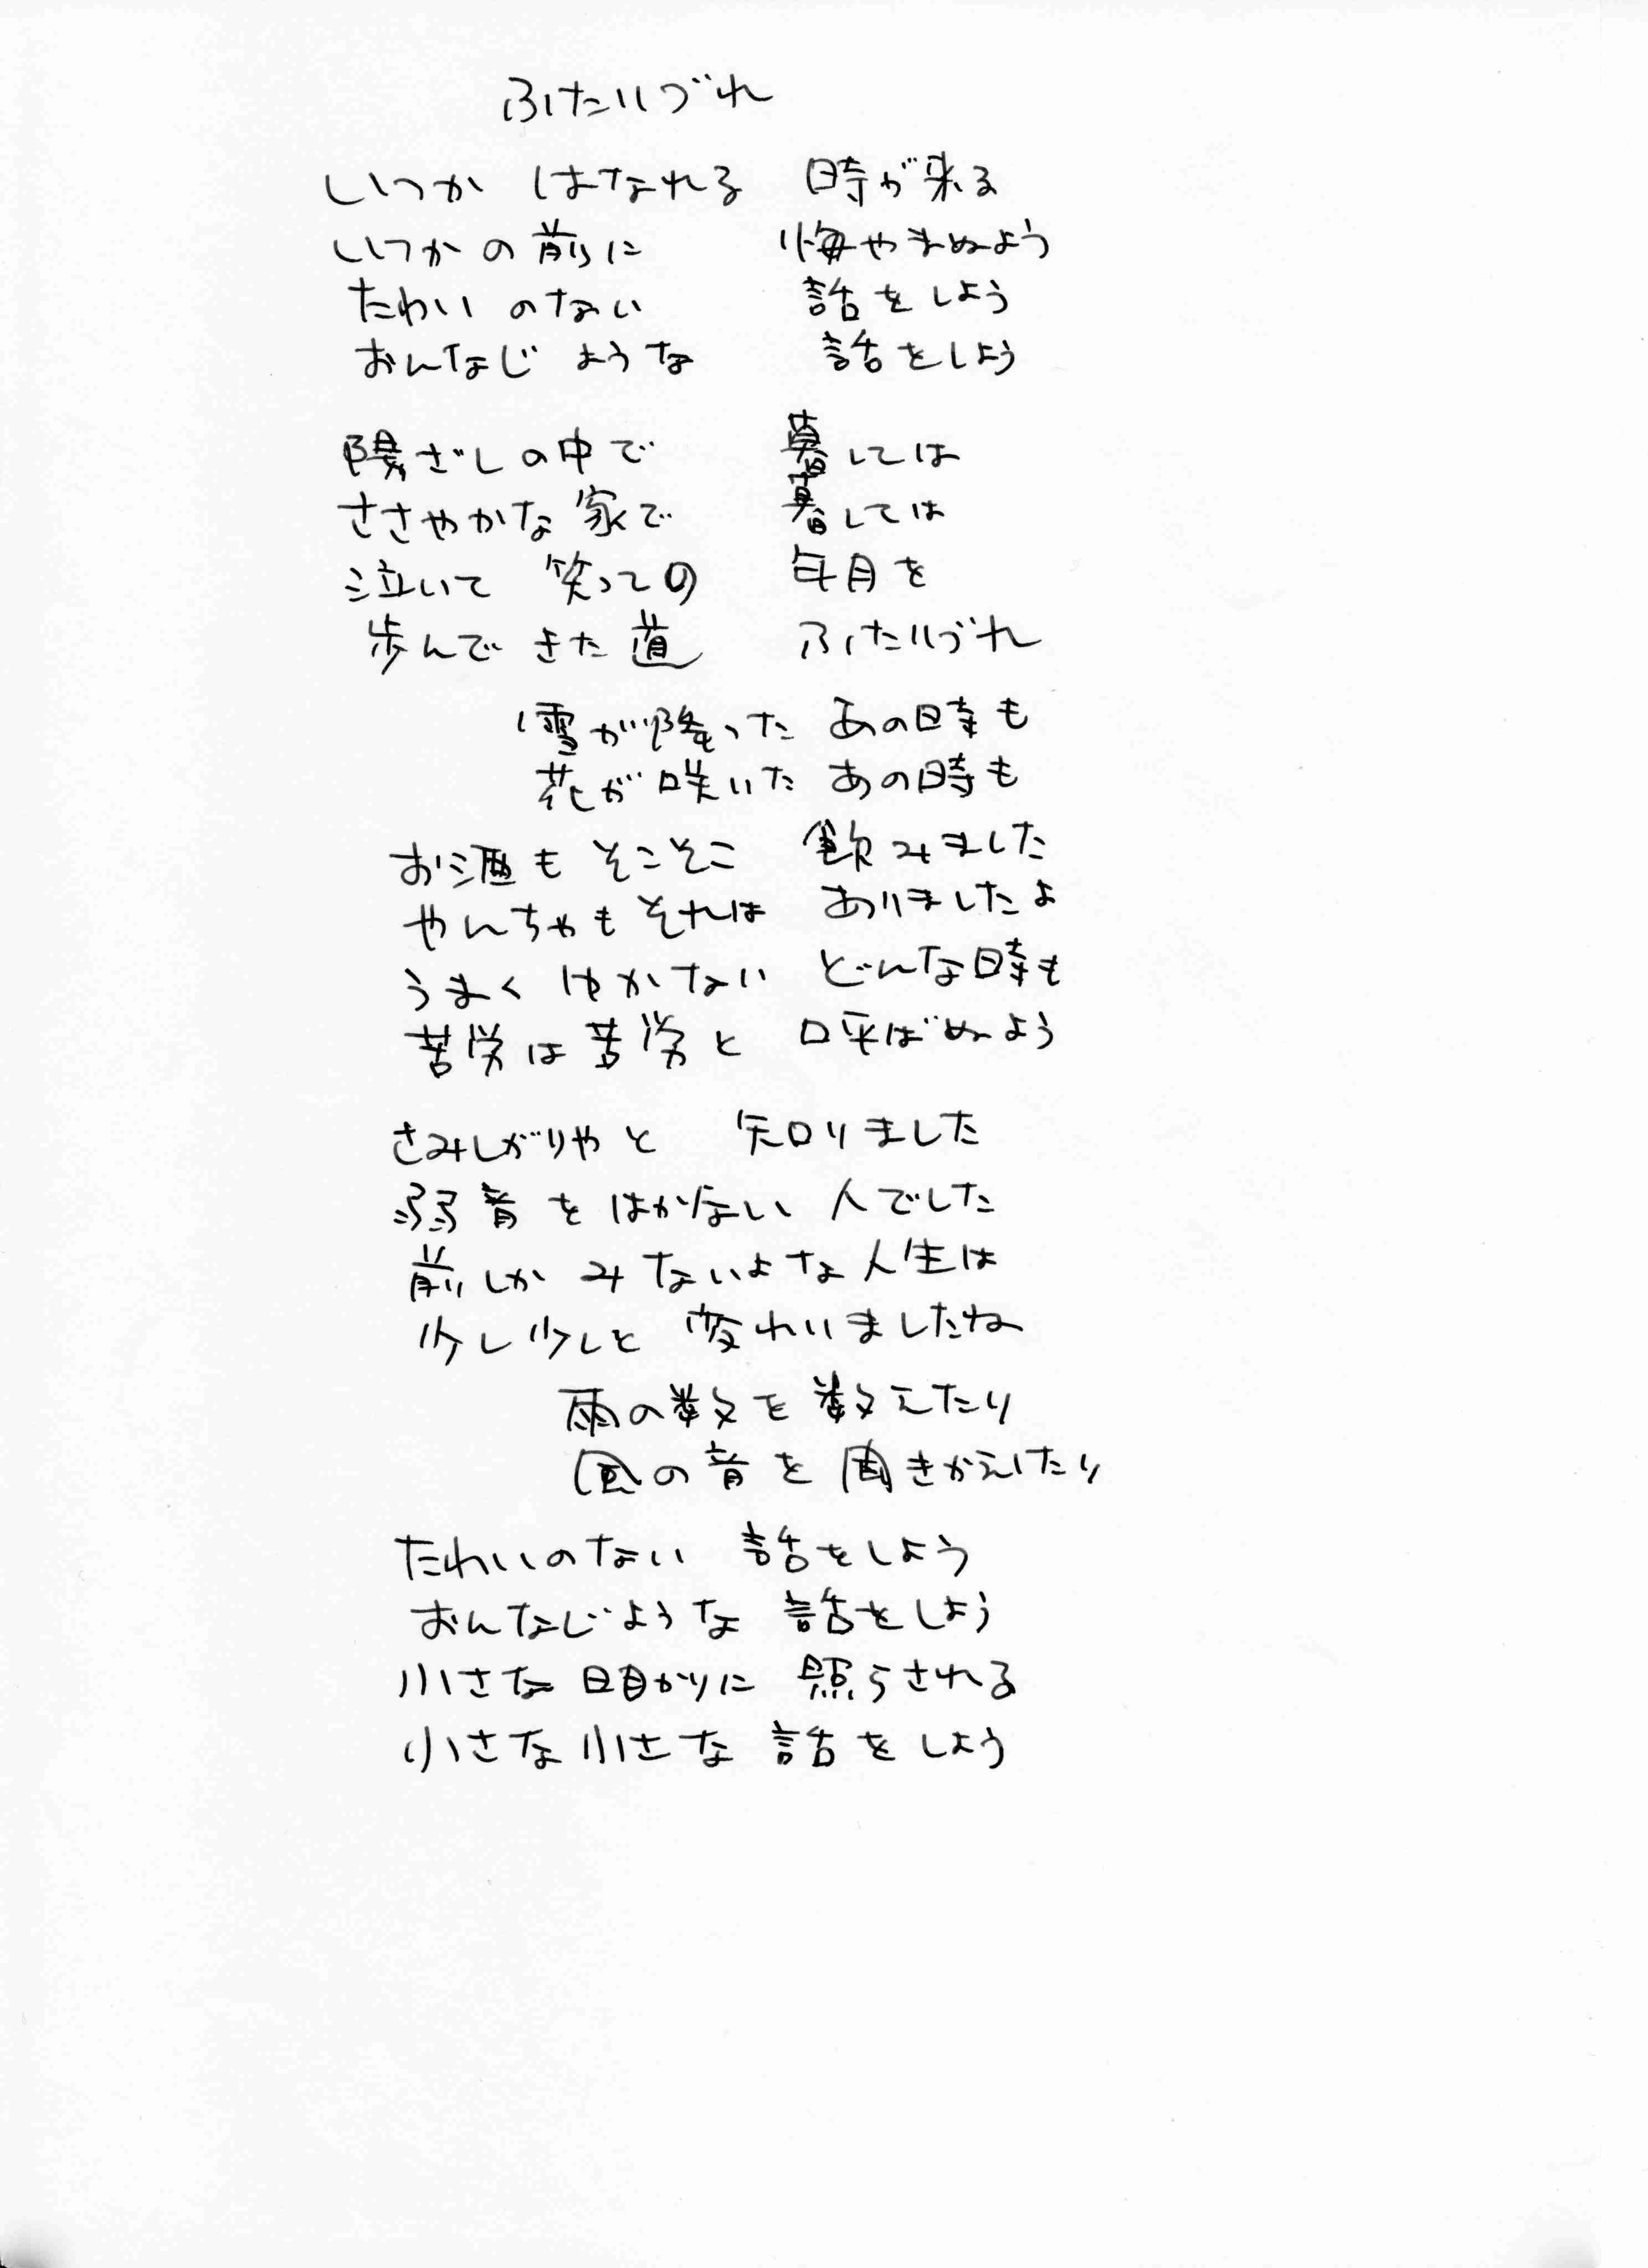 ふたりづれ
いつか はなれる 時が来る
いつかの前に 悔やまぬよう
たわいのない 話をしよう
おんなじような 話をしよう
陽ざしの中で 暮しては
ささやかな家で 暮しては
泣いて 笑っての 年月を
歩んできた道 ふたりづれ
雪が降った あの時も
花が咲いた あの時も
お酒もそこそこ 飲みました
やんちゃもそれは ありましたよ
うまくゆかない どんな時も
苦労は苦労と 呼ばぬよう
さみしがりやと 知りました
弱音をはかない 人でした
前しかみないよな人生は
少し少しと 変わりましたね
雨の数を 数えたり
風の音を 聞きかえしたり
たわいのない 話をしよう
おんなじような 話をしよう
小さな明かりに 照らされる
小さな小さな 話をしよう